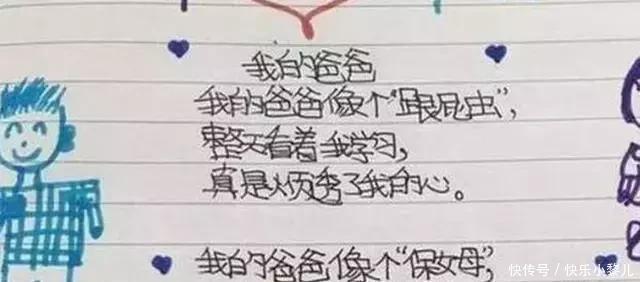 我的爸爸
我的爸爸像个"跟屁虫",
整天看着我学习,
真是烦透了我的心。
我的爸爸像个"保女母",
快传号/快乐小黎儿